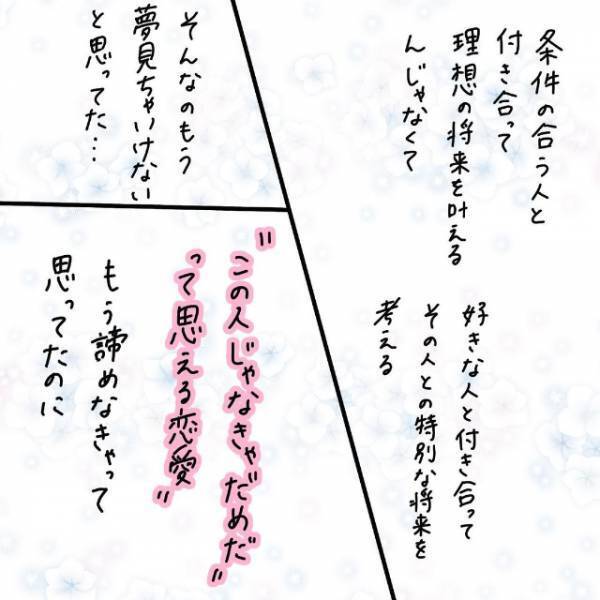 条件の合う人と
付き合って
理想の将来を叶える
んじゃなくて
好きな人と付き合って
その人との特別な将来を
考える
そんなのもう
夢見ちゃいけない
と思ってた…
"この人じゃなきゃだめだ"
って思える恋愛"
もう諦めなきゃって
思ってたのに